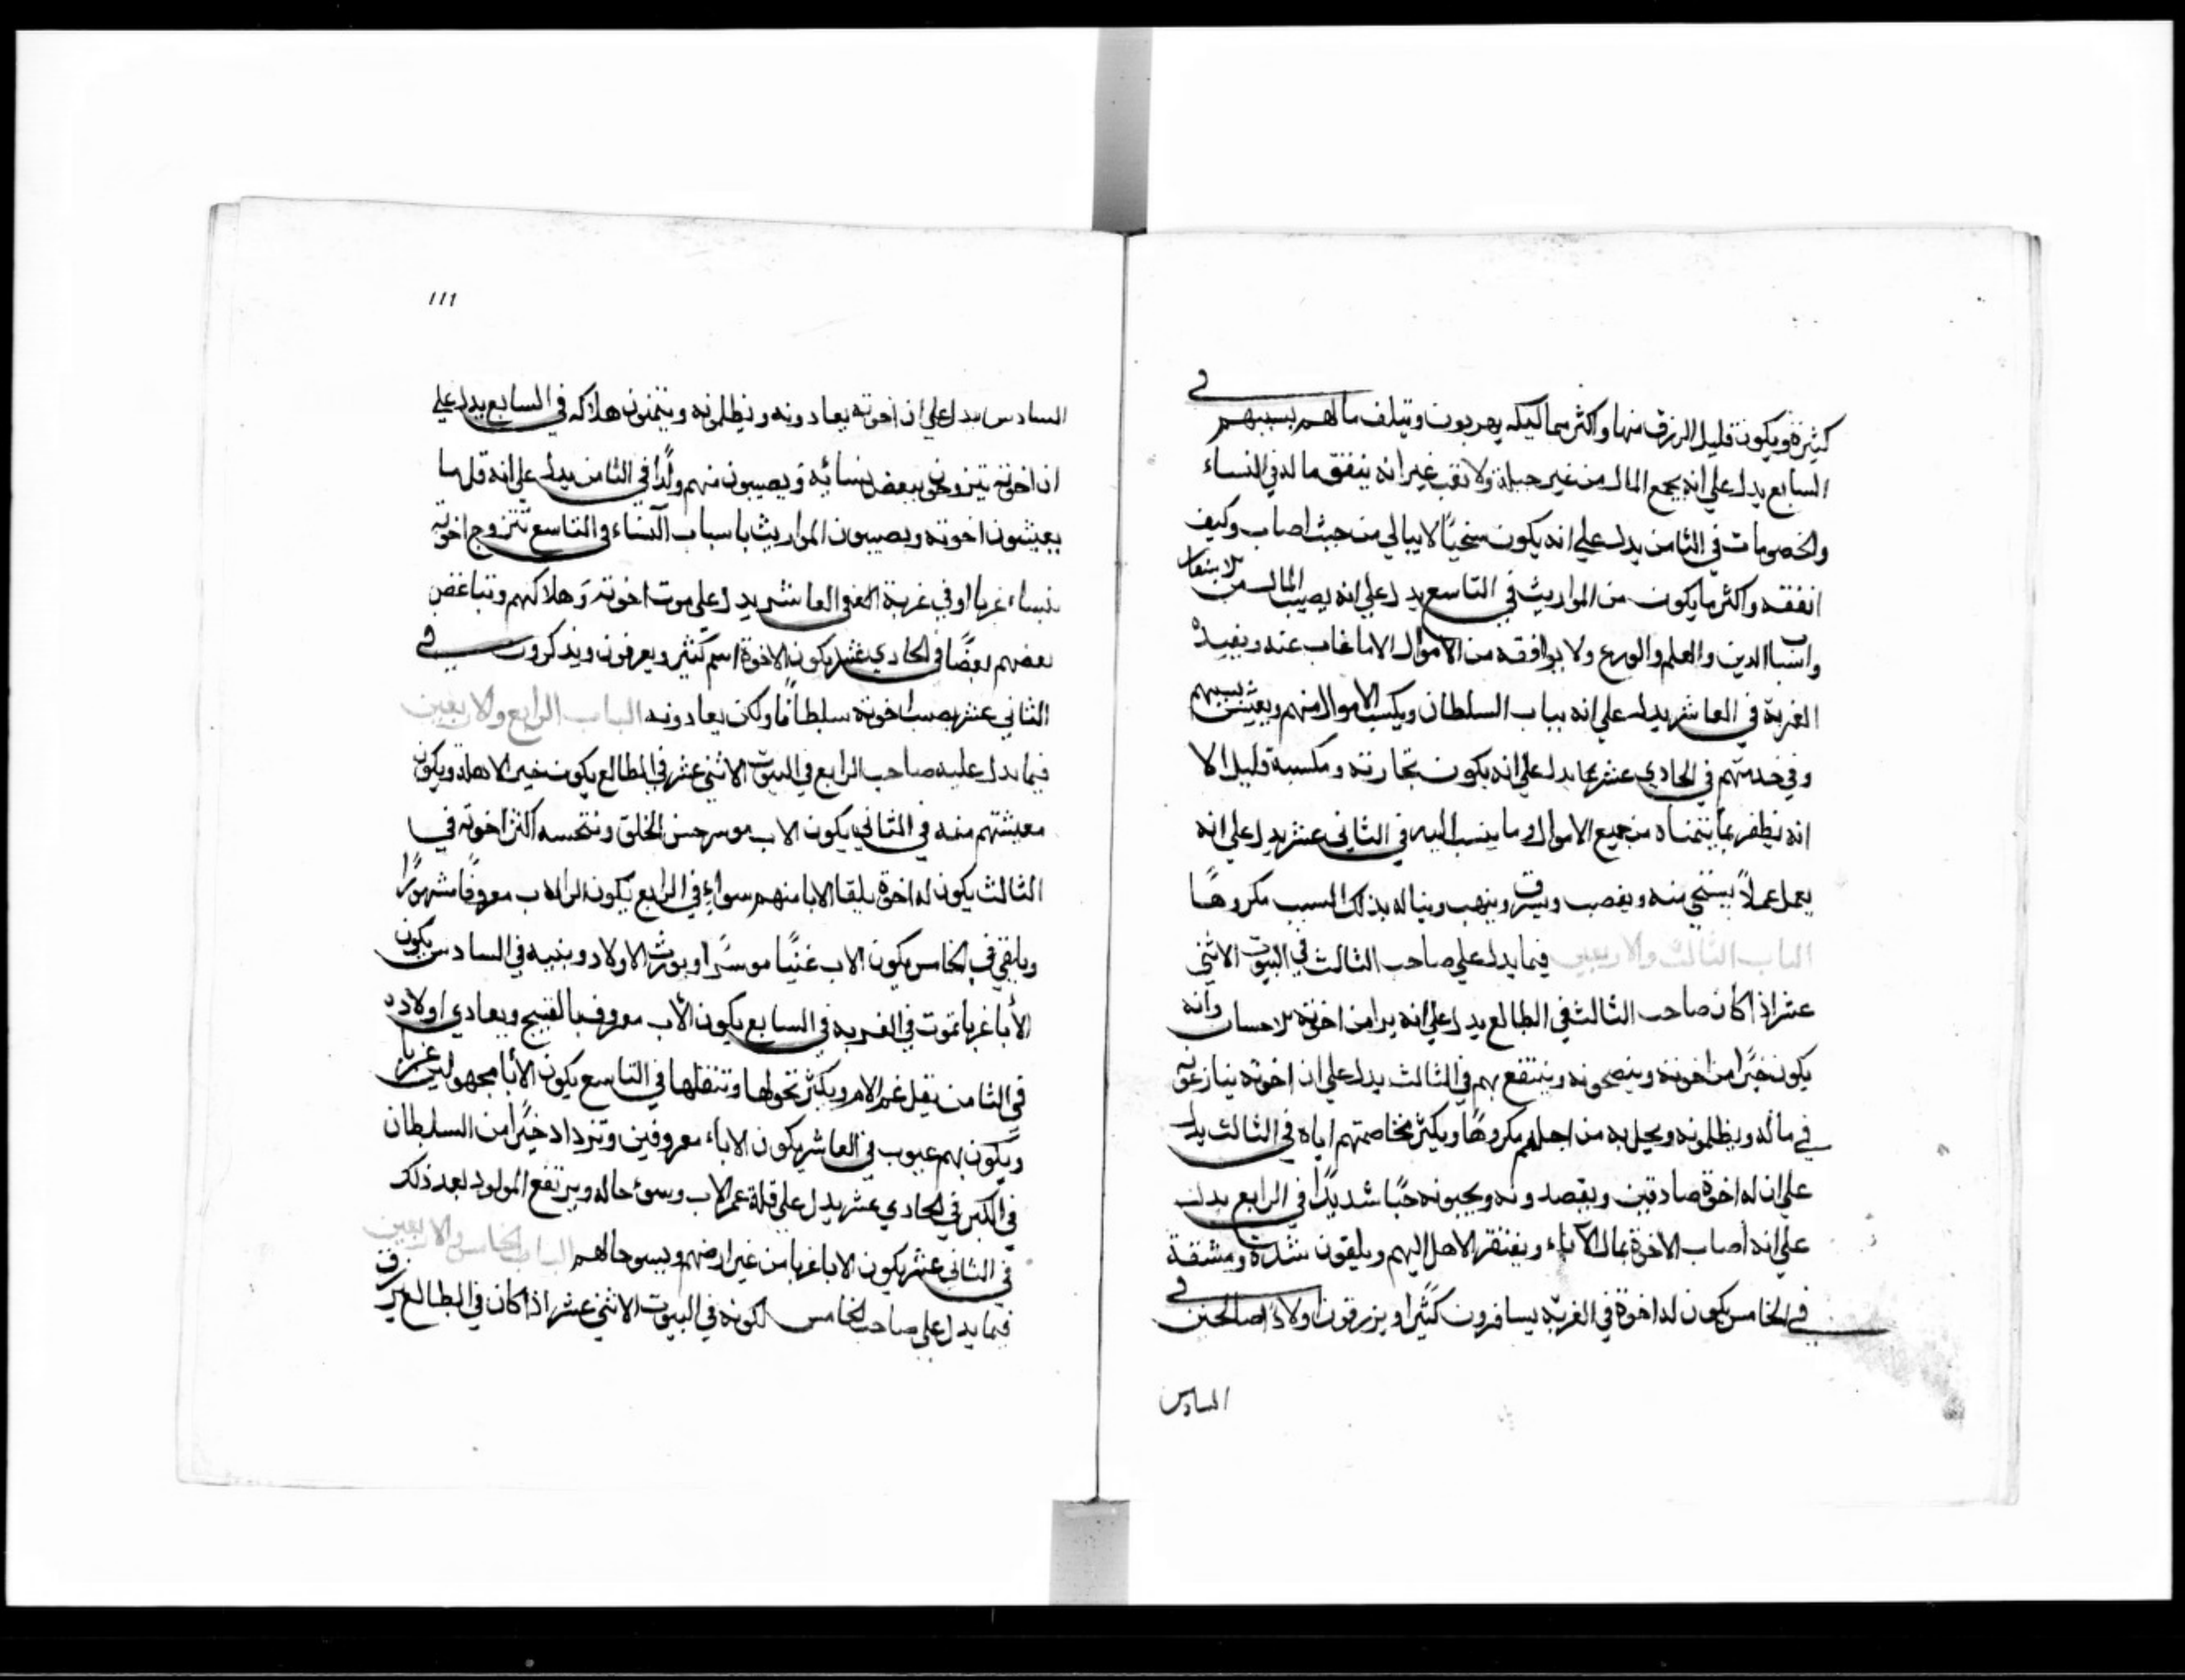 كثيرة ويكون قليل الرزق منها واكثر مماليكه يهربون ويتلف مالهم بسببهم في
السابع يدل علي انه يجمع المال من غير حيلة ولا تعب غير انه ينفق ماله في النساء
والخصومات في الثامن يدل علي انه يكون سخيًا لا يبالي من حيث اصاب وكيف
انفقه واكثر ما يكون من المواريث في التاسع يدل علي انه يصيب المال من الاسفار
واسباب الدين والعلم والورع ولا يوافقه من الاموال الا ما غاب عنه ويفيده
الغربة في العاشر يدل علي انه بباب السلطان ويكسب الاموال منهم ويعيش بسببهم
وفي خدمتهم في الحادي عشر مما يدل علي انه يكون تجارته ومكسبه قليل الا
انه يظفر بما يتمناه من جميع الاموال وما ينسب اليه في الثاني عشر يدل علي انه
يعمل عملاً يستحي منه ويغصب ويسرق وينهب ويناله بذلك السبب مكروهًا
الباب الثالث والاربعين فيما يدل علي صاحب الثالث في البيوت الاثني
عشر اذا كان صاحب الثالث في الطالع يدل علي انه يرا من اخوته الاحسان وانه
يكون خيرًا من اخوته وينصحونه وينتفع بهم في الثالث يدل علي ان اخوته ينازعونه
في ماله ويظلمونه ويحل به من اجلهم مكروهًا ويكثر مخاصمتهم اياه في الثالث يدل
علي ان له اخوة صادقين ويقصدونه ويحبونه حبًا شديدًا في الرابع يدل
علي انه اصاب الاخوة بمال الآباء ويفتقر الاهل اليهم ويلقون شدة ومشقة
في الخامس يكون له اخوة في الغربة يسافرون كثيرًا ويرزقون اولادًا صالحين في
السادس
111
السادس يدل علي ان اخوته يعادونه ويظلمونه ويتمنون هلاكه في السابع يدل علي
ان اخوته يتزوجون ببعض نسائه ويصيبون منهم ولدًا في الثامن يدل علي انه قل ما
يعيشون اخوته ويصيبون المواريث باسباب النساء في التاسع تتزوج اخوته
نساء غربا او في غربة في العاشر يدل علي موت اخوته وهلاكهم وتباغض
بعضهم بعضًا في الحادي عشر يكون الاخوة اسم كثير ويعرفون ويذكرون في
الثاني عشر يصيب اخوته سلطانًا ولكن يعادونه الباب الرابع والاربعين
فيما يدل عليه صاحب الرابع في البيوت الاثني عشر في الطالع يكون خير الاهله ويكون
معيشتهم منه في الثاني يكون الاب موسر حسن الخلق وتنحسه اكثر اخوته في
الثالث يكون له اخوة يلقا الابا منهم سواء في الرابع يكون الاب معروفًا مشهورًا
ويلقي في الخامس يكون الاب غنيًا موسرًا ويورث الاولاد وبنيه في السادس يكون
الأبا غربا تموت في الغربه في السابع يكون الأب معروف بالقبيح ويعادي اولاده
في الثامن يقل عمر الام ويكثر تحولها وتنقلها في التاسع يكون الأبا مجهولين غربا
ويكون بهم عيوب في العاشر يكون الاباء معروفين وتزداد خيرًا من السلطان
في الكبر في الحادي عشر يدل علي قلة عمر الاب وسوء حاله ويرتفع المولود بعد ذلك
في الثاني عشر يكون الابا غربا من غير ارضهم ويسو حالهم الباب الخامس والاربعين
فيما يدل علي صاحب الخامس لكونه في البيوت الاثني عشر اذا كان في الطالع يرزق